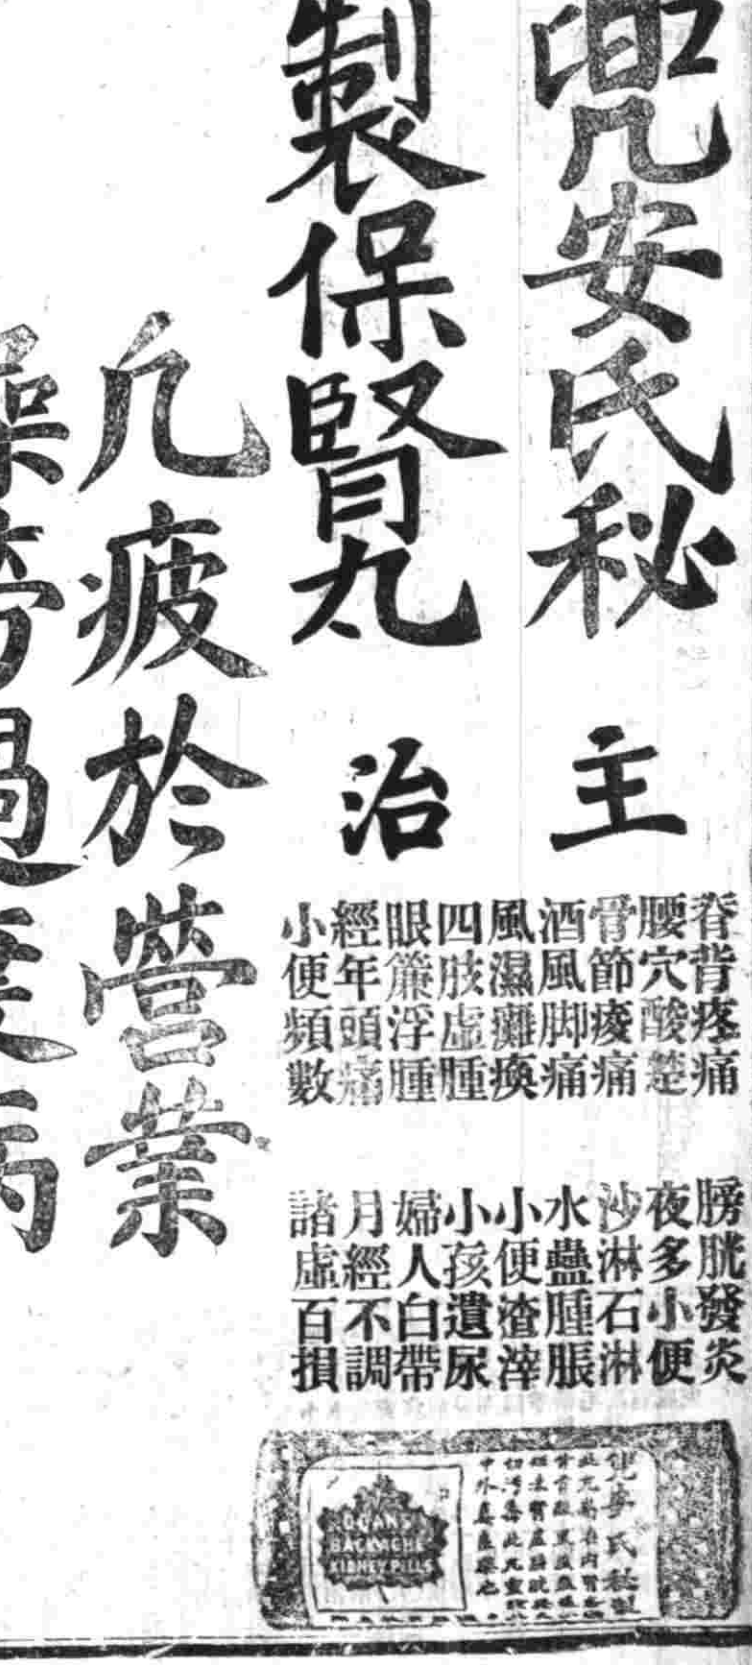 兜安氏秘
製保腎丸
主治
脊背疼痛
腰穴酸楚
骨節痠痛
酒風脚痛
風濕癱瘓
四肢虛腫
眼簾浮腫
經年頭痛
小便頻數
膀胱發炎
夜多小便
沙淋石淋
水蠱腫脹
小便渣滓
小孩遺尿
婦人白帶
月經不調
諸虛百損
凡疲於營業
勞過度
兜安氏秘製
DOAN'S
BACKACHE
KIDNEY PILLS